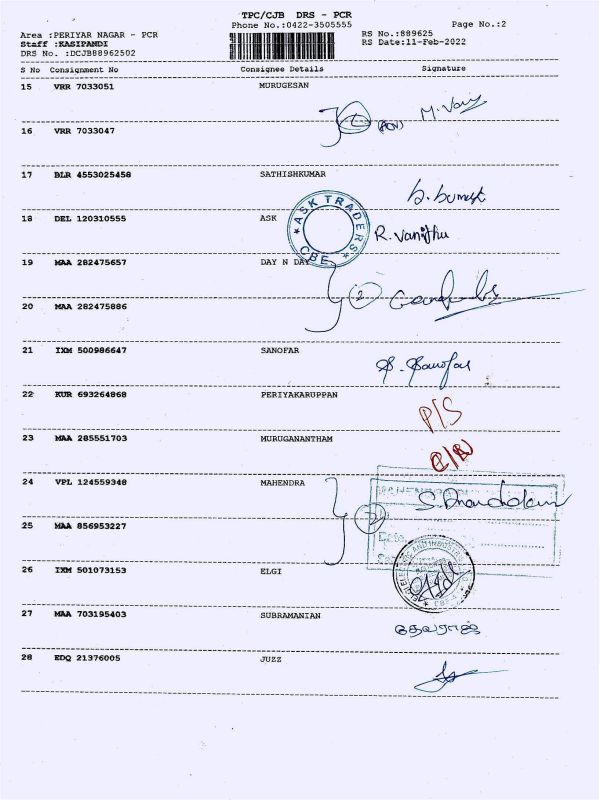 TPC/CJB DRS - PCR
Phone No.:0422-3505555
Page No.:2
Area :PERIYAR NAGAR - PCR
RS No.:889625
Staff :KASIPANDI
RS Date:11-Feb-2022
DRS No. :DCJB88962502
S No Consignment No Consignee Details Signature
15 VRR 7033051 MURUGESAN
16 VRR 7033047
17 BLR 4553025458 SATHISHKUMAR
18 DEL 120310555 ASK
ASK TRADERS
CBE
R. Vanitha
19 MAA 282475657 DAY N DAY
2
20 MAA 282475886
21 IXM 500986647 SANOFAR
S. Sanofar
22 KUR 693264868 PERIYAKARUPPAN
P/S
23 MAA 285551703 MURUGANANTHAM
24 VPL 124559348 MAHENDRA
2
25 MAA 856953227
Date:
26 IXM 501073153 ELGI
27 MAA 703195403 SUBRAMANIAN
தேவராஜ்
28 EDQ 21376005 JUZZ